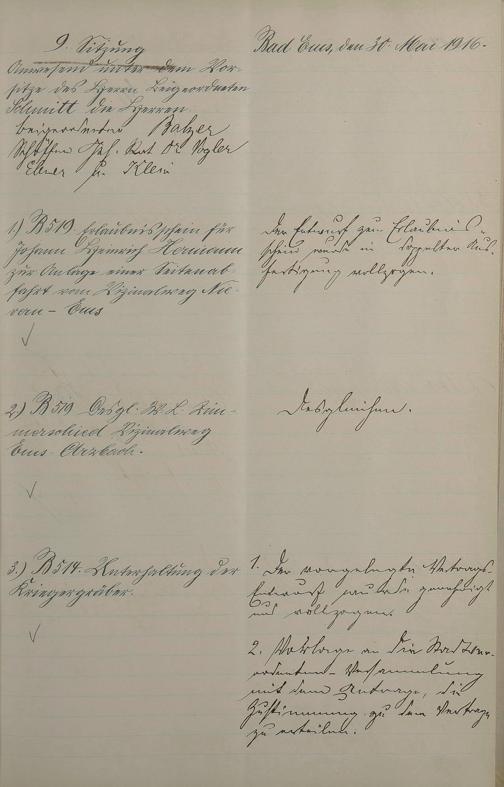 9. Sitzung
Anwesend unter dem Vor-
sitze des Herrn Beigeordneten
Schmitt die Herren
Beigeordneter Balzer
Schöffen Geh. Rat Dr. Vogler
Ebner u. Klein
Bad Ems, den 30. Mai 1916.
1) B 519 Erlaubnisschein für
Johann Heinrich Hermann
zur Anlage einer Seitenab-
fahrt vom Vizinalweg Nie-
vern - Ems
Der Entwurf zum Erlaubnis-
schein wurde in doppelter Aus-
fertigung vollzogen.
2) B 519 Desgl. W. L.
Vizinalweg
Ems - Arzbach.
Desgleichen.
3.) B 514. Unterhaltung der
Kriegergräber.
1. Der vorgelegte Vertrags-
Entwurf wurde genehmigt
und vollzogen.
2. Vorlage an die Stadtver-
ordneten-Versammlung
mit dem Antrage, die
Zustimmung zu dem Vertrage
zu erteilen.